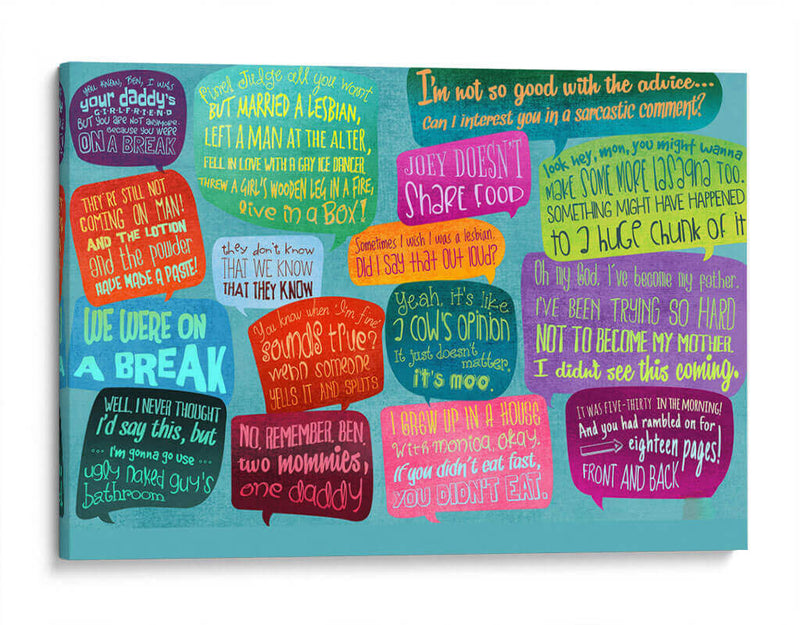 YOU KNOW, BEN, I WAS
your daddy's
GIRLFRIEND
BUT YOU ARE NOT ANYMORE
BECAUSE YOU WERE
ON A BREAK
Pivel Judge all you want
BUT MARRIED A LESBIAN,
LEFT A MAN AT THE ALTER,
FELL IN LOVE WITH A GAY ICE DANCER
THREW A GIRL'S WOODEN LEG IN A FIRE,
live in a BOX!
I'm not so good with the advice...
Can I interest you in a sarcastic comment?
JOEY DOESN'T
SHARE FOOD
look hey, mon, you might wanna
MAKE SOME MORE lasagna TOO.
SOMETHING MIGHT HAVE HAPPENED
to a huge chunk of it
THEY'RE STILL NOT
COMING ON MAN!
AND THE LOTION
and the powder
HAVE MADE A PASTE!
they don't know
THAT WE KNOW
THAT THEY KNOW
Sometimes I wish I was a lesbian.
Did I say that out loud?
Oh my God, I've become my father.
I'VE BEEN TRYING SO HARD
NOT TO BECOME MY MOTHER.
I didn't see this coming.
WE WERE ON
A BREAK
You know when "I'm fine"
sounds true?
when someone
YELLS IT AND SPLITS
Yeah, it's like
a cow's opinion
It just doesn't
matter,
it's moo.
WELL, I NEVER THOUGHT
I'd say this, but
... I'm gonna go use ...
ugly naked guy's
bathroom
NO, REMEMBER, BEN.
two mommies,
one daddy
I GREW UP IN A HOUSE
With monica okay.
If you didn't eat fast,
YOU DIDN'T EAT.
IT WAS FIVE-THIRTY IN THE MORNING!
And you had rambled on for
eighteen pages!
FRONT AND BACK